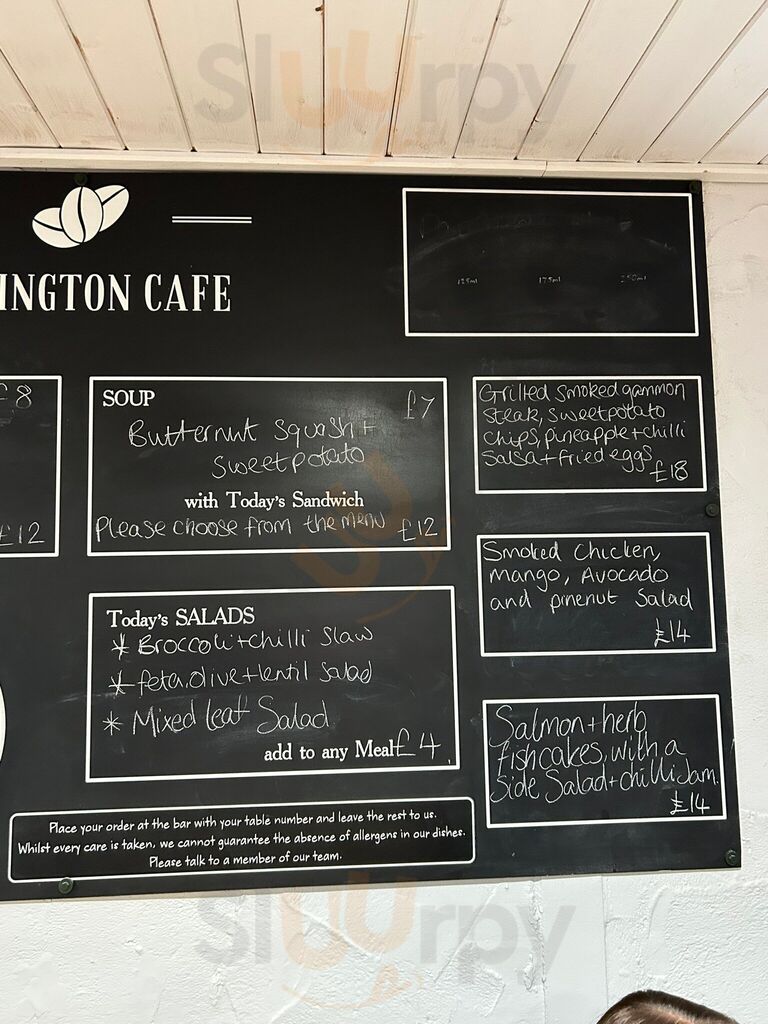 Sluurpy
125ml 175ml 250ml
INGTON CAFE
£8
£12
SOUP £7
Butternut Squash +
Sweetpotato
with Today's Sandwich
Please choose from the menu £12
Today's SALADS
* Broccoli + chilli Slaw
* feta, olive + lentil Salad
* Mixed leaf Salad
add to any Meal £4
Grilled smoked gammon
steak, sweetpotato
chips, pineapple + chilli
salsa + fried eggs
£18
Smoked Chicken,
mango, Avocado
and pinenut Salad
£14
Salmon + herb
fishcakes, with a
Side Salad + chilli Jam.
£14
Place your order at the bar with your table number and leave the rest to us.
Whilst every care is taken, we cannot guarantee the absence of allergens in our dishes.
Please talk to a member of our team.
Sluurpy